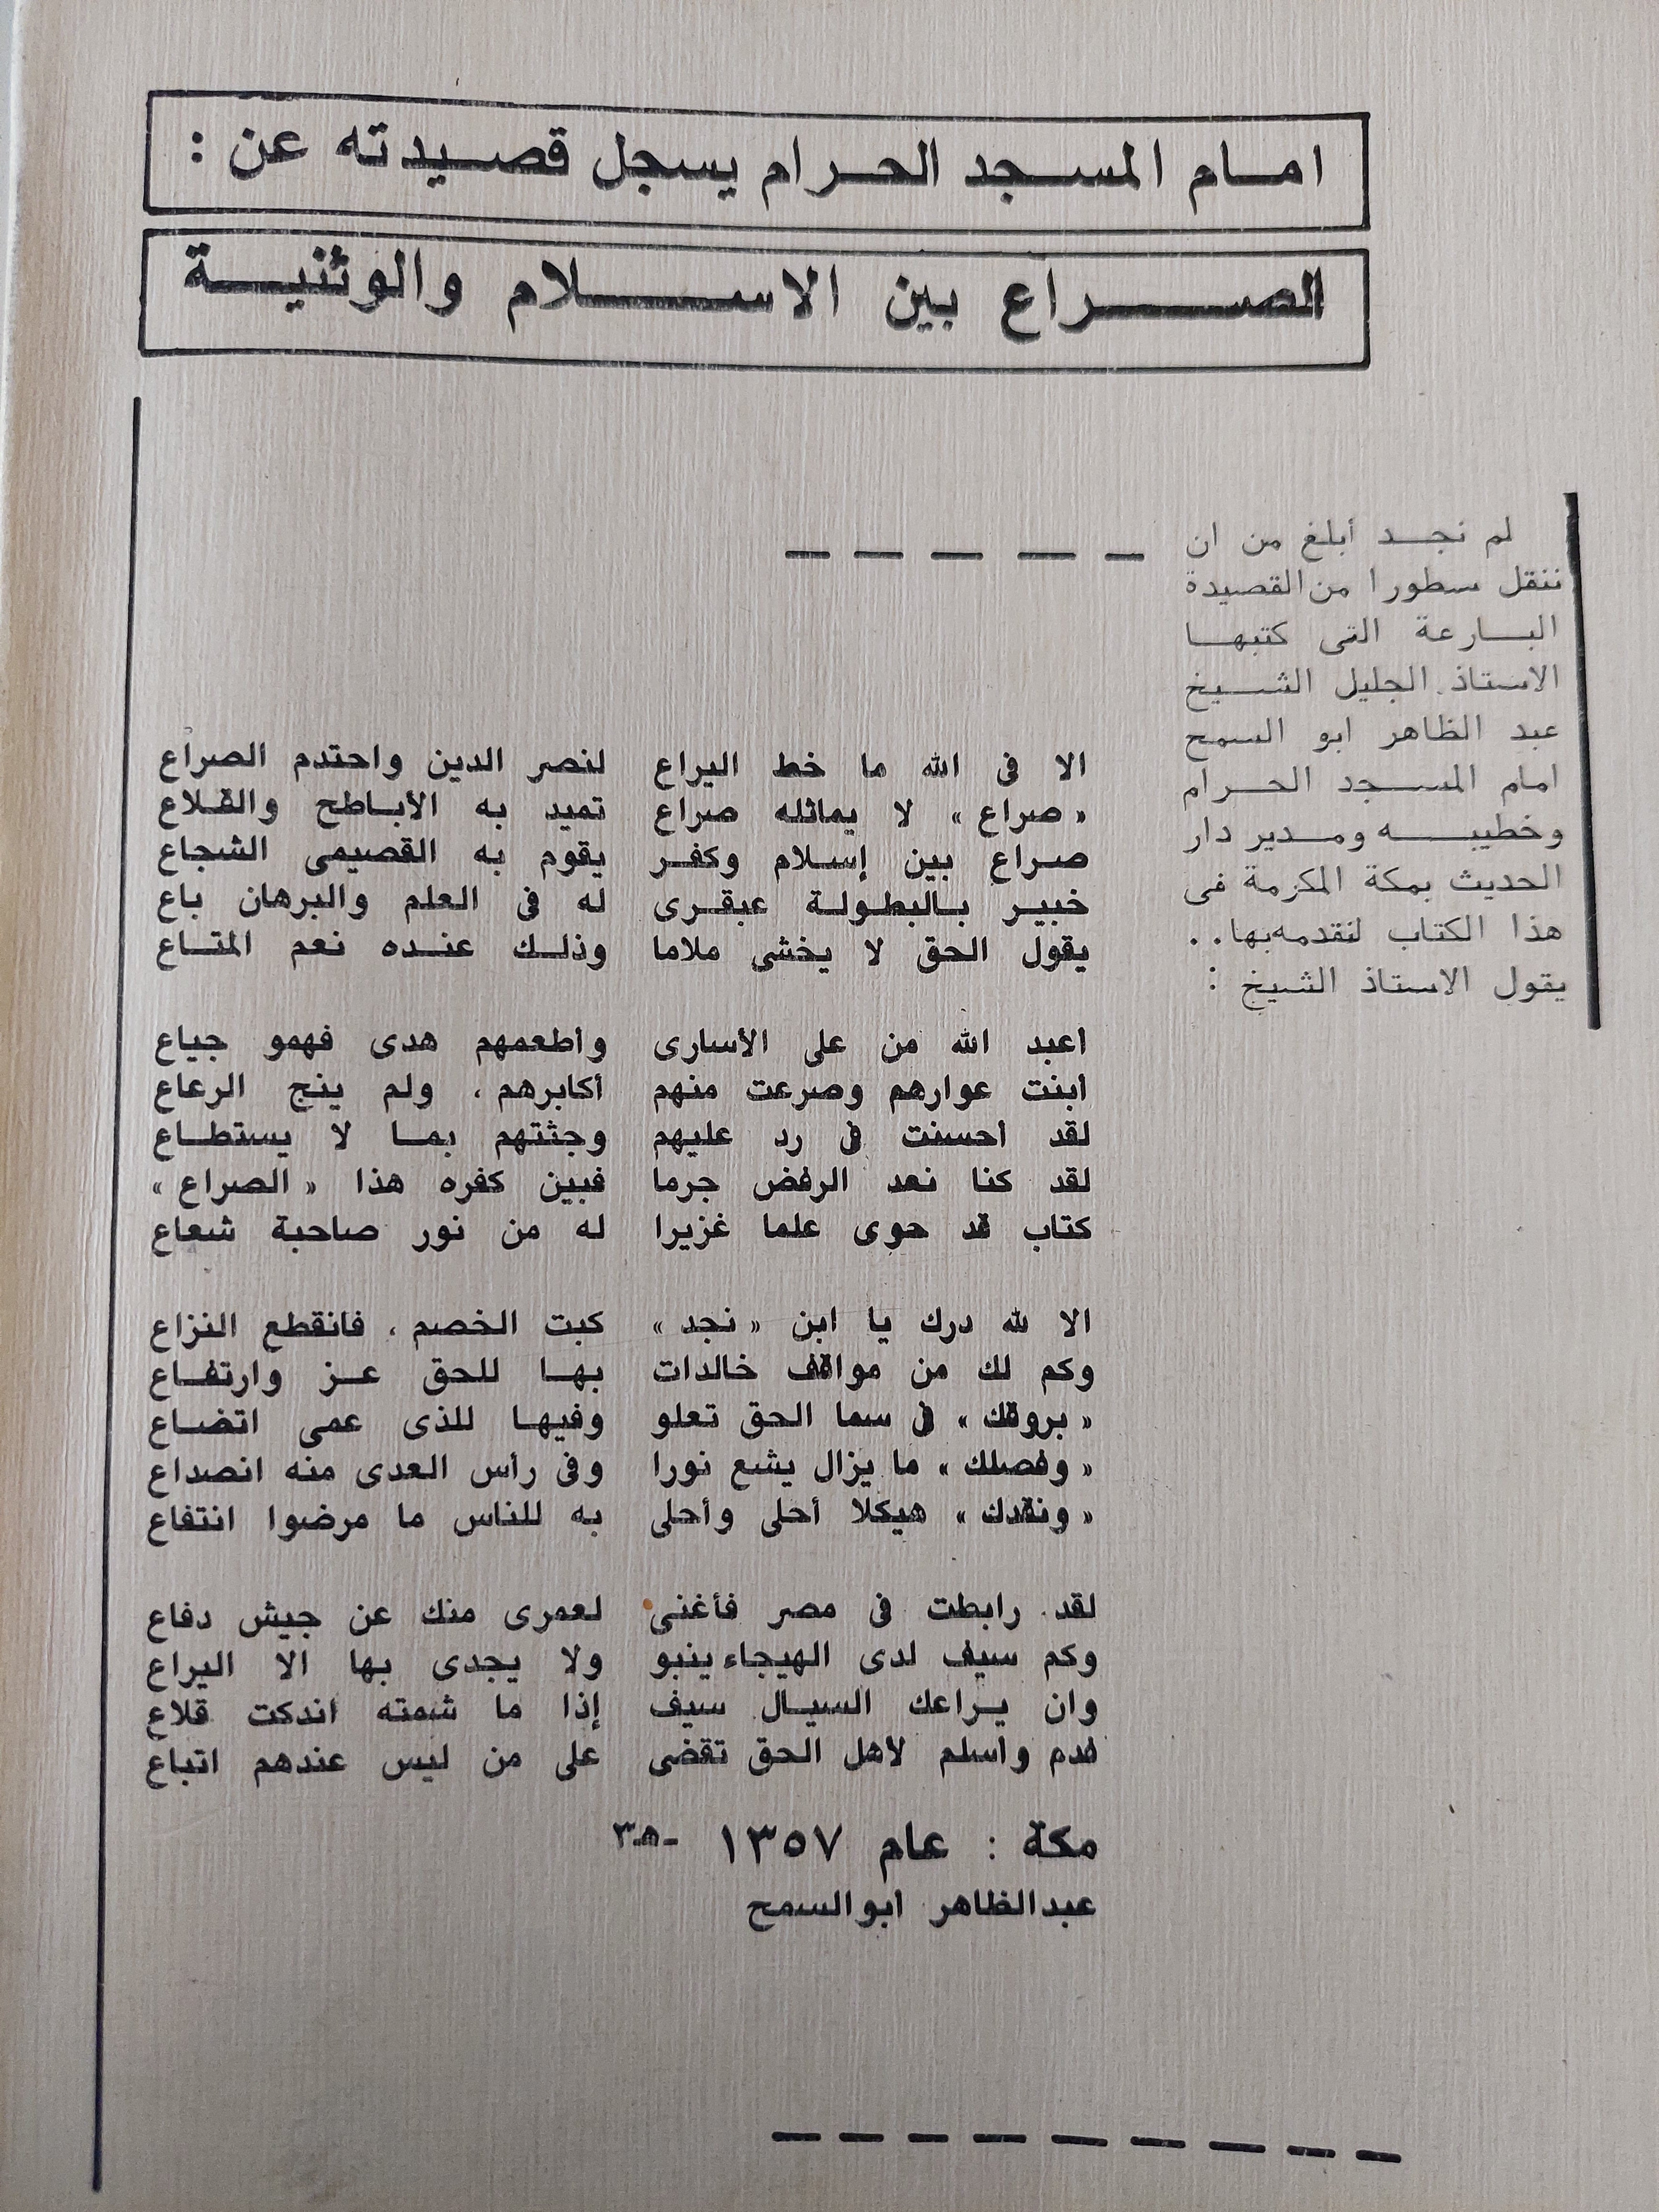 امام المسجد الحرام يسجل قصيدته عن :
الصراع بين الاسلام والوثنية
لم نجد أبلغ من ان
ننقل سطورا من القصيدة
البارعة التى كتبها
الاستاذ الجليل الشيخ
عبد الظاهر ابو السمح
امام المسجد الحرام
وخطيبه ومدير دار
الحديث بمكة المكرمة فى
هذا الكتاب لنقدمه بها . .
يقول الاستاذ الشيخ :
الا فى الله ما خط اليراع لنصر الدين واحتدم الصراع
« صراع » لا يماثله صراع تميد به الأباطح والقلاع
صراع بين إسلام وكفر يقوم به القصيمى الشجاع
خبير بالبطولة عبقرى له فى العلم والبرهان باع
يقول الحق لا يخشى ملاما وذلك عنده نعم المتاع
أعبد الله من على الأسارى وأطعمهم هدى فهمو جياع
أبنت عوارهم وصرعت منهم أكابرهم ، ولم ينج الرعاع
لقد أحسنت فى رد عليهم وجئتهم بما لا يستطاع
لقد كنا نعد الرفض جرما فبين كفره هذا « الصراع »
كتاب قد حوى علما غزيرا له من نور صاحبة شعاع
الا لله درك يا ابن « نجد » كبت الخصم ، فانقطع النزاع
وكم لك من مواقف خالدات بها للحق عز وارتفاع
« بروقك » فى سما الحق تعلو وفيها للذى عمى اتضاع
« وفصلك » ما يزال يشع نورا وفى رأس العدى منه انصداع
« ونقدك » هيكلا أحلى وأحلى به للناس ما مرضوا انتفاع
لقد رابطت فى مصر فأغنى لعمرى منك عن جيش دفاع
وكم سيف لدى الهيجاء ينبو ولا يجدى بها الا اليراع
وان يراعك السيال سيف إذا ما شمته اندكت قلاع
فدم وأسلم لأهل الحق تقضى على من ليس عندهم اتباع
مكة : عام ١٣٥٧ -هـ٣
عبدالظاهر ابوالسمح